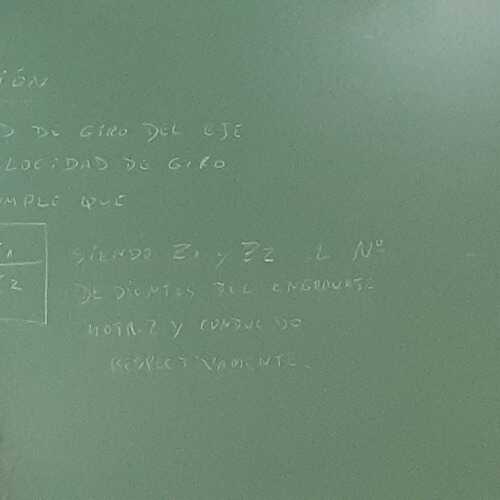 IÓN
D DE GIRO DEL EJE
LOCIDAD DE GIRO
MPLE QUE
Z1
Z2
SIENDO Z1 y Z2 EL Nº
DE DIENTES DEL ENGRANAJE
MOTRIZ Y CONDUCIDO
RESPECTIVAMENTE.